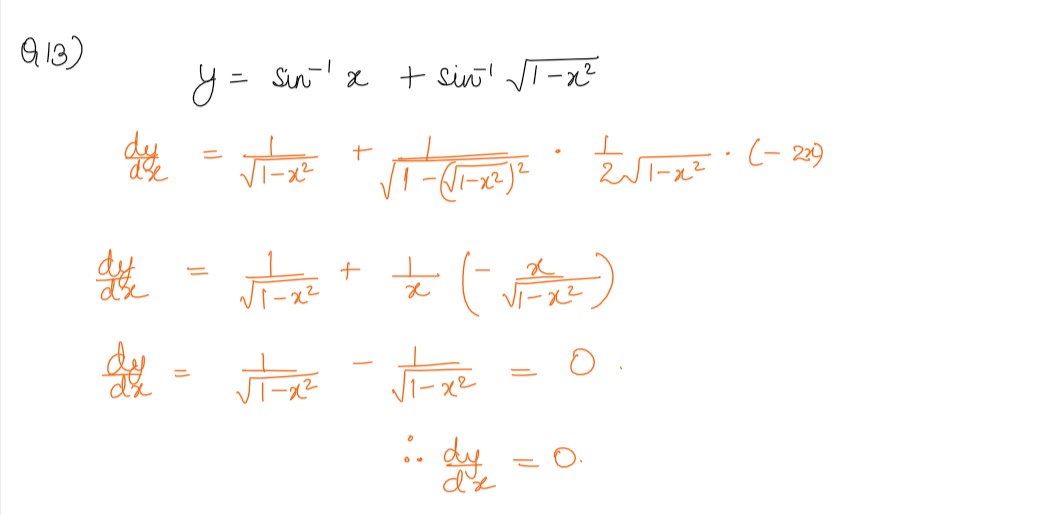 Q13)
y = sin⁻¹ x + sin⁻¹ √(1-x²)
dy/dx = 1/√(1-x²) + 1/√(1-(√(1-x²))²) · 1/(2√(1-x²)) · (-2x)
dy/dx = 1/√(1-x²) + 1/x (- x/√(1-x²))
dy/dx = 1/√(1-x²) - 1/√(1-x²) = 0.
∴ dy/dx = 0.